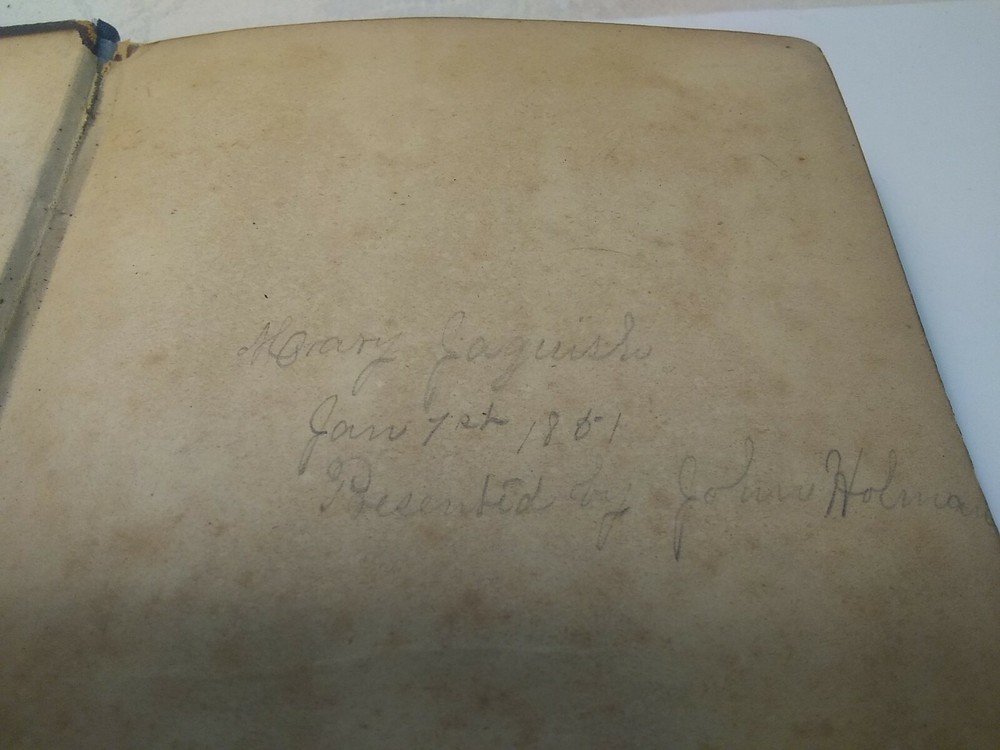 Mary Jaquish
Jan 1st 1851
Presented by John Holman